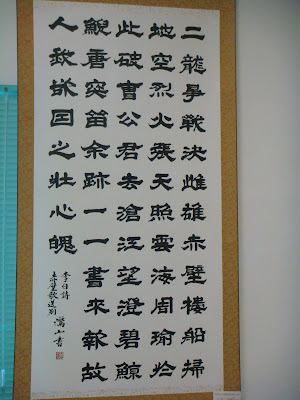 二龍爭戰決雌雄赤壁樓船掃
地空烈火張天照雲海周瑜於
此破曹公君去滄江望澄碧鯨
鯢唐突留余跡一一書來報故
人我欲因之壯心魄
李白詩
赤壁歌送別
嵩山書